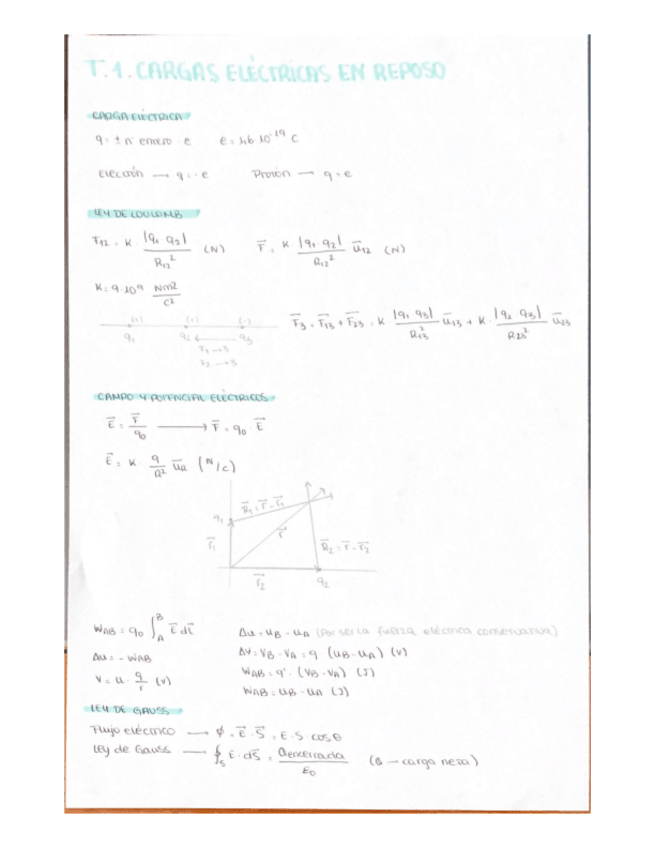 T.1. CARGAS ELÉCTRICAS EN REPOSO
CARGA ELÉCTRICA
q = ± nº entero · e    e = 1,6·10⁻¹⁹ C
Electrón → q = -e    Protón → q = e
LEY DE COULOMB
F₁₂ = K · |q₁ q₂| / R₁₂² (N)    F⃗ = K |q₁·q₂| / R₁₂² u̅₁₂ (N)
K = 9·10⁹ Nm2 / C²
(+) (+) (-)
q₁ q₂ q₃
F₁→3
F₂→3
F⃗₃ = F⃗₁₃ + F⃗₂₃ = K |q₁ q₃| / R₁₃² u̅₁₃ + K · |q₂ q₃| / R₂₃² u̅₂₃
CAMPO Y POTENCIAL ELÉCTRICOS
E⃗ = F⃗ / q₀ → F⃗ = q₀ E⃗
E⃗ = K · q / R² u̅R (N/C)
q₁ R⃗₁ = r⃗ - r⃗₁
r⃗₁ r⃗ R⃗₂ = r⃗ - r⃗₂
r⃗₂ q₂
WAB = q₀ ∫ₐᴮ E⃗ dl⃗    Δu = uB - uA (Por ser la fuerza eléctrica conservativa)
Δu = - WAB    ΔV = VB - VA = q (uB - uA) (V)
V = K · q / r (V)    WAB = q' · (VB - VA) (J)
WAB = uB - uA (J)
LEY DE GAUSS
Flujo eléctrico → φ = E⃗ · S⃗ = E · S · cosθ
Ley de Gauss → ∮s E · dS⃗ = Qencerrada / ε₀ (Q → carga neta)